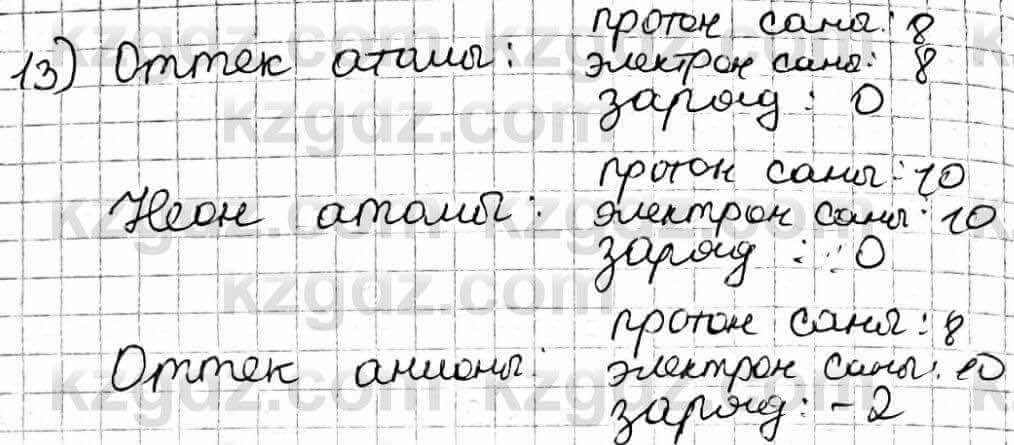 протон саны: 8
13) Оттек атомы: электрон саны: 8
заряд: 0
протон саны: 10
Неон атомы: электрон саны: 10
заряд: 0
протон саны: 8
Оттек анионы: электрон саны: 10
заряд: -2
kzgdz.com
kzgdz.com
kzgdz.com
kzgdz.com